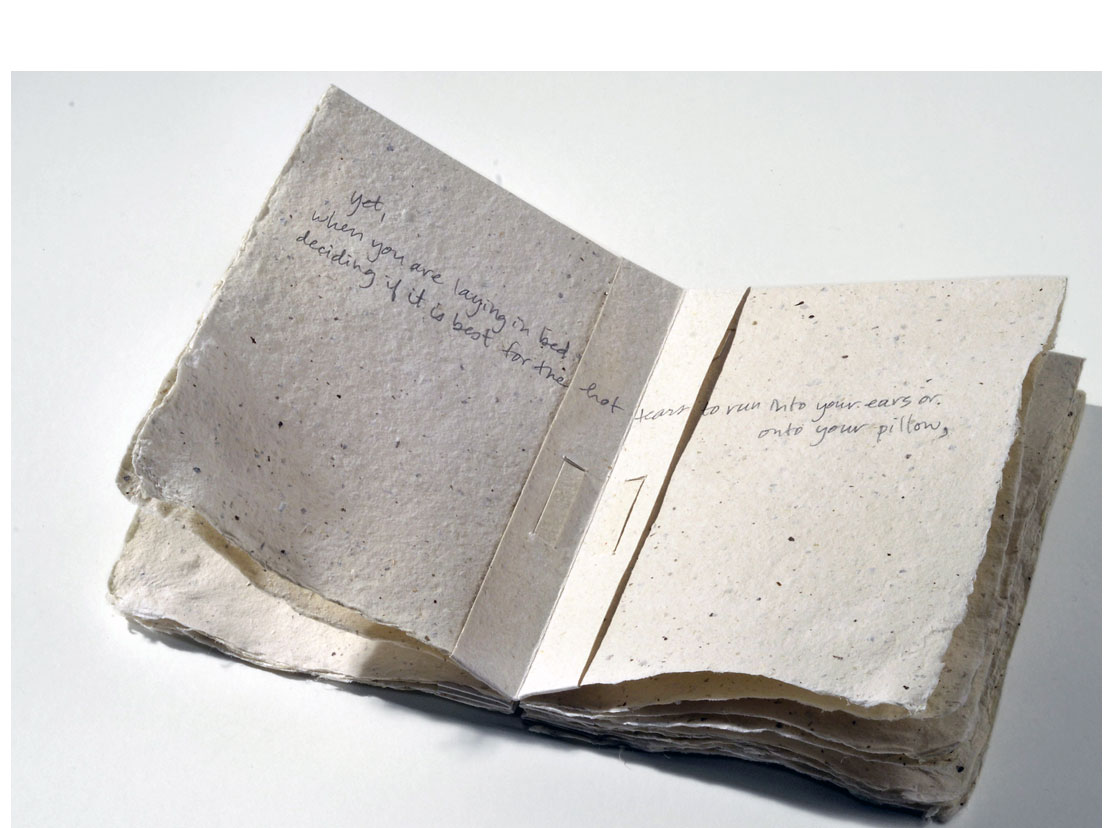 yet,
when you are laying in bed,
deciding if it is best for the hot tears to run into your ears or
onto your pillow,